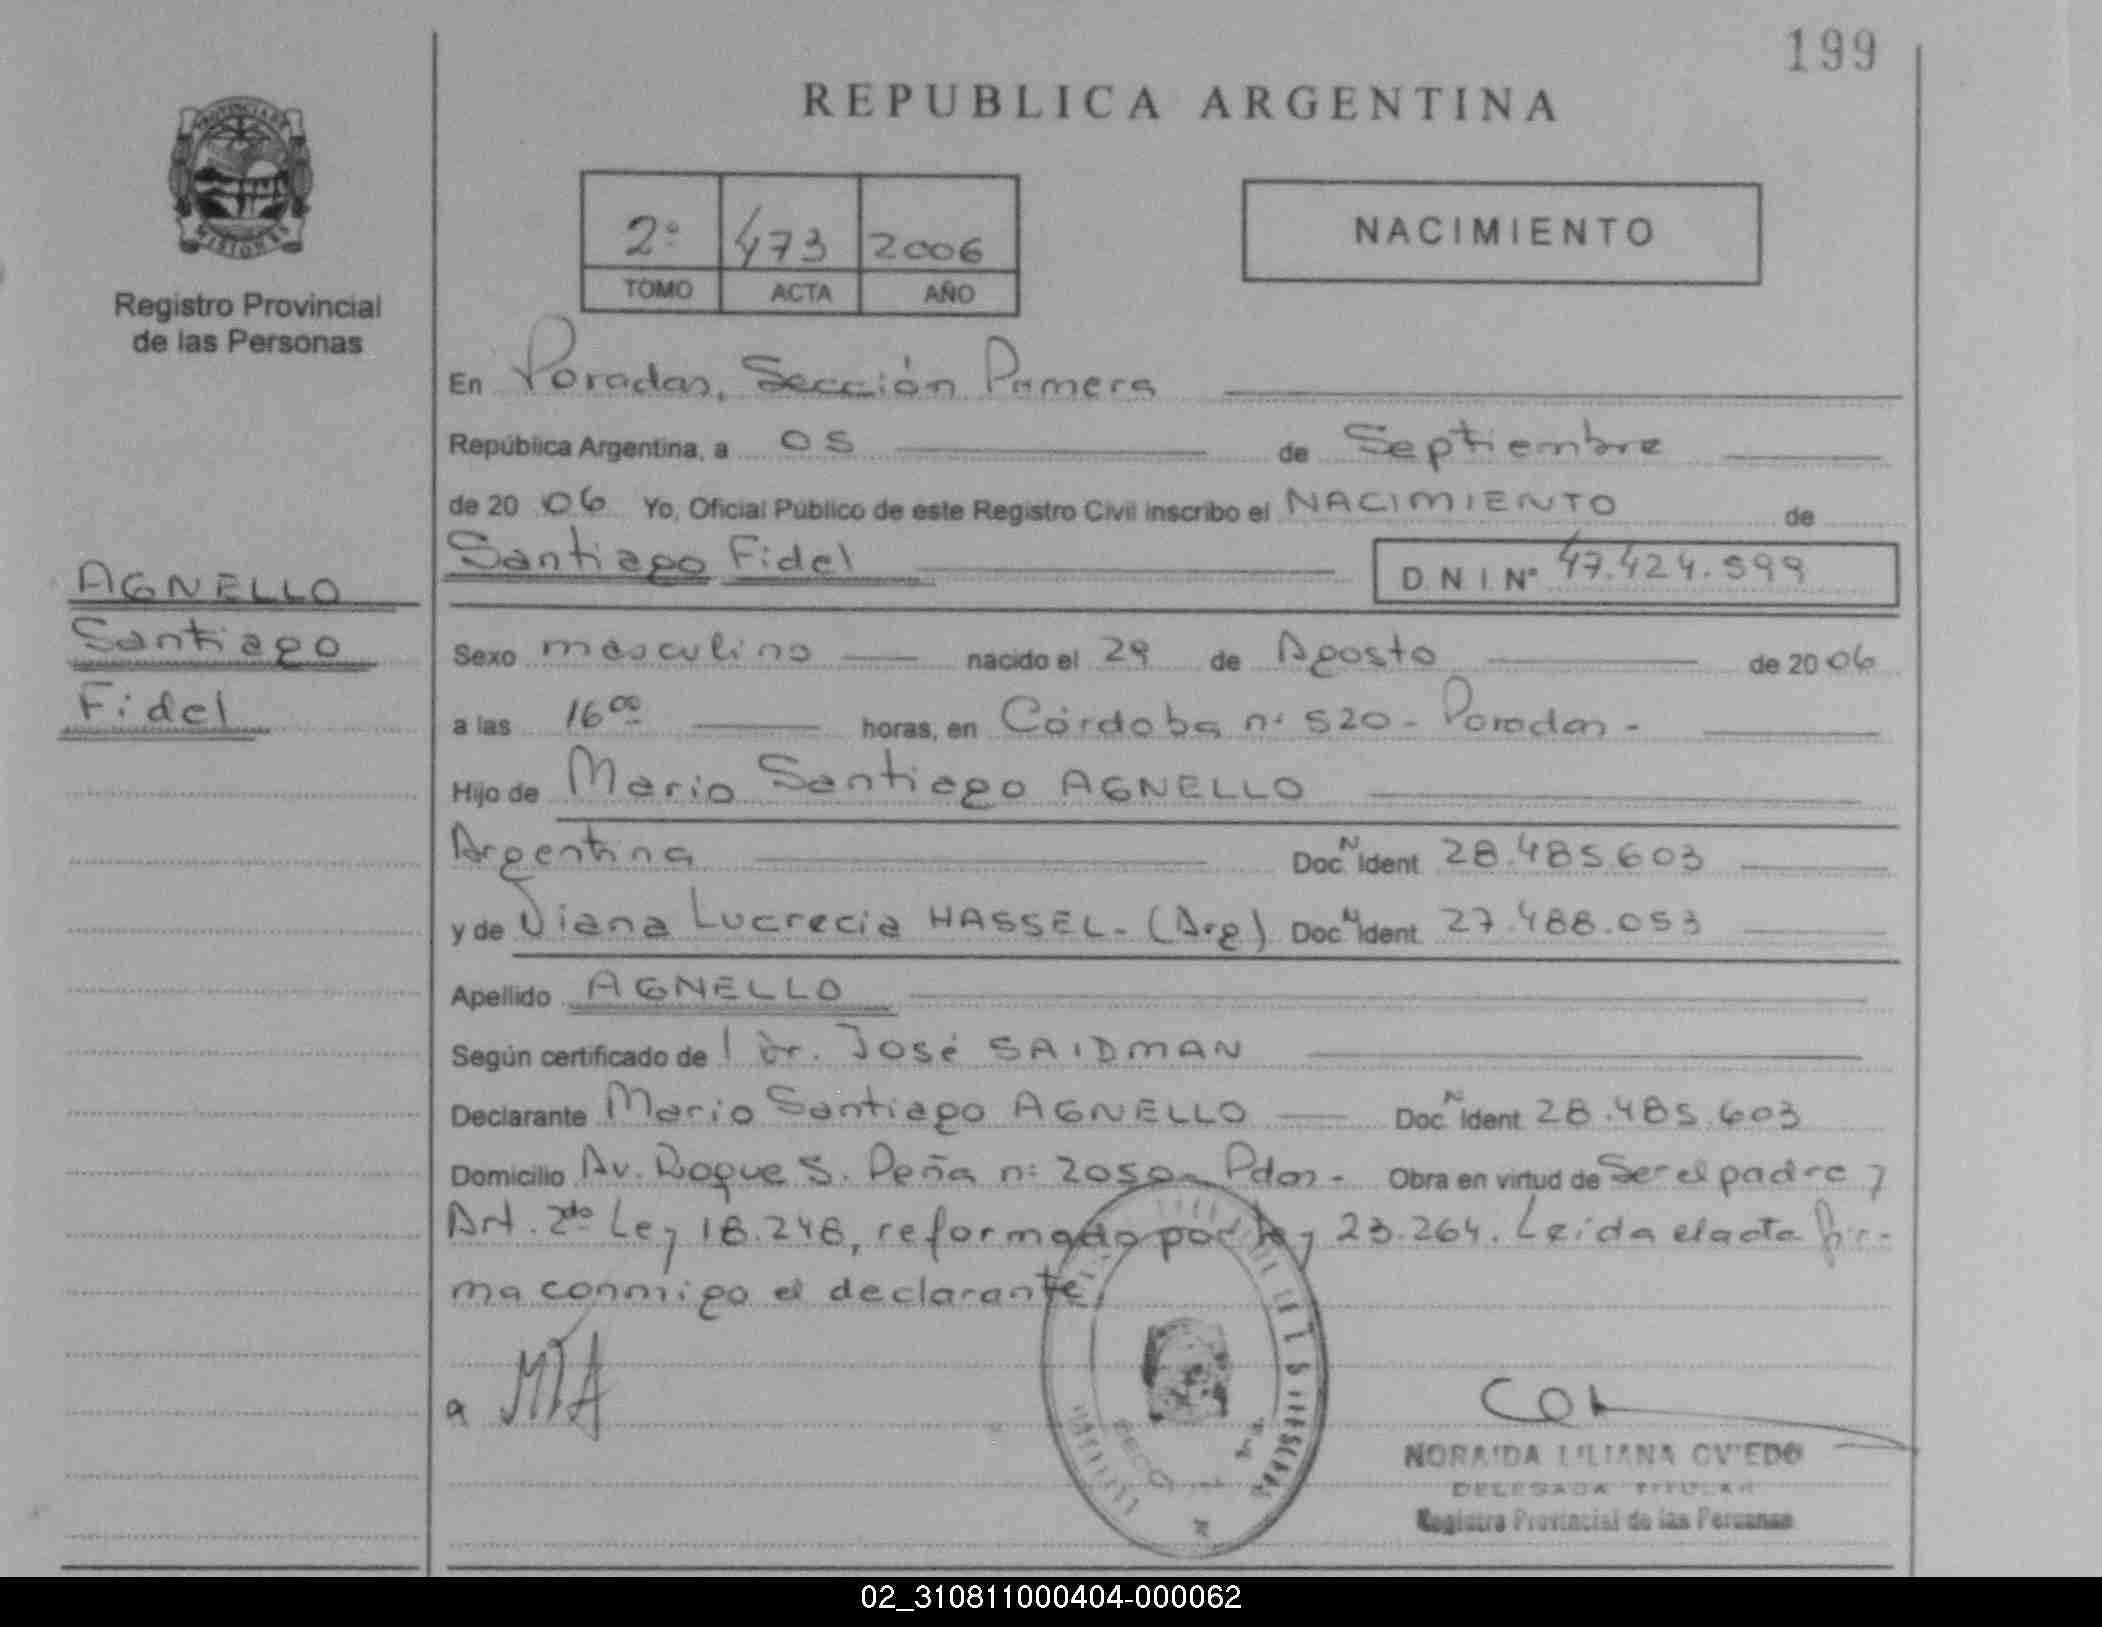 199
REPUBLICA ARGENTINA
PROVINCIA DE
MISIONES
Registro Provincial
de las Personas
2º 473 2006
TOMO ACTA AÑO
NACIMIENTO
En Posadas, Sección Primera
República Argentina, a 05 de Septiembre
de 20 06 Yo, Oficial Público de este Registro Civil inscribo el NACIMIENTO de
Santiago Fidel D.N.I. Nº 47.424.599
AGNELLO
Santiago
Fidel
Sexo masculino nacido el 29 de Agosto de 20 06
a las 16 00 horas, en Córdoba nº 520 - Posadas -
Hijo de Mario Santiago AGNELLO
Argentina Doc. N Ident 28.485.603
y de Diana Lucrecia HASSEL - (Arg) Doc. N Ident. 27.488.053
Apellido AGNELLO
Según certificado de l Dr. José SAIDMAN
Declarante Mario Santiago AGNELLO Doc. N Ident 28.485.603
Domicilio Av. Roque S. Peña nº 2050 - Pdas - Obra en virtud de Ser el padre y
Art. 2do Ley 18.248, reformado por ley 23.264. Leída el acta fir-
ma conmigo el declarante,
a MSA
NORAIDA LILIANA OVIEDO
DELEGADA TITULAR
Registro Provincial de las Personas
02_310811000404-000062